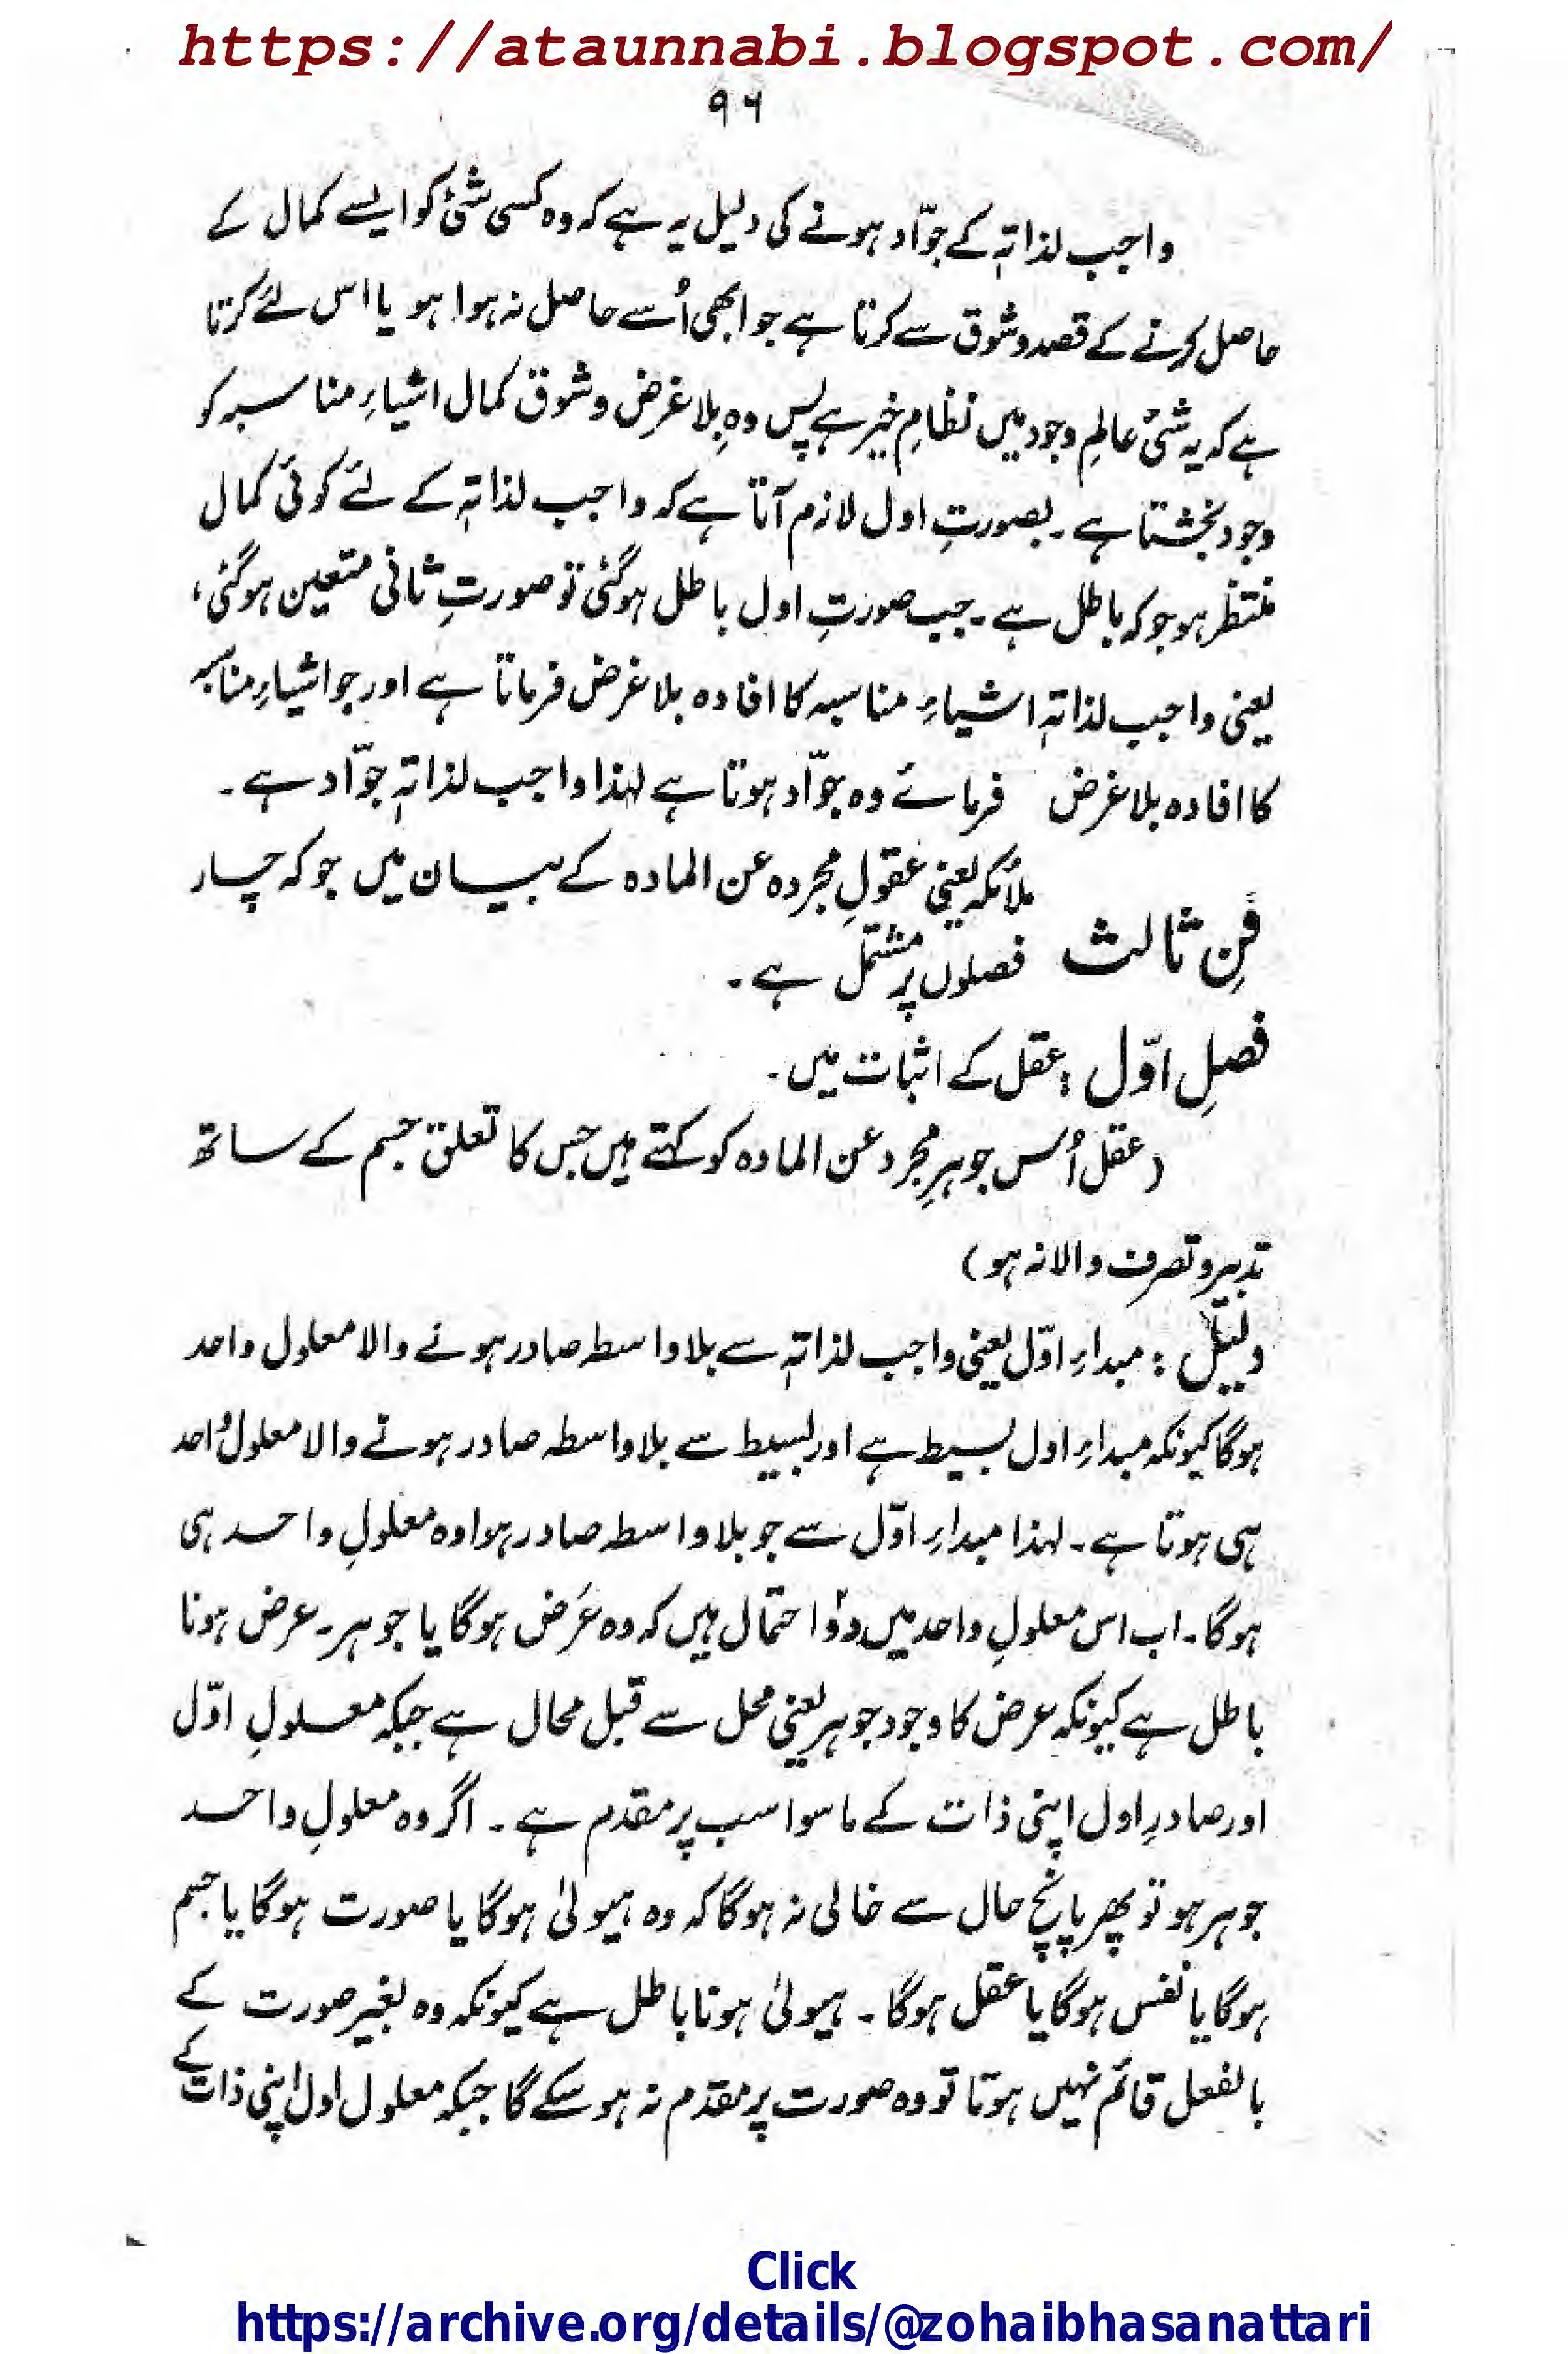 https://ataunnabi.blogspot.com/
۹۶
واجب لذاتہٖ کے جوّاد ہونے کی دلیل یہ ہے کہ وہ کسی شئ کو ایسے کمال کے
حاصل کرنے کے قصد و شوق سے کرتا ہے جو ابھی اُسے حاصل نہ ہوا ہو یا اس لئے کرتا
ہے کہ یہ شئ عالمِ وجود میں نظامِ خیر ہے پس وہ بِلا غرض و شوق کمال اشیاءِ مناسبہ کو
وجود بخشتا ہے ۔ بصورتِ اول لازم آتا ہے کہ واجب لذاتہٖ کے لئے کوئی کمال
منتظر ہو جو کہ باطل ہے ۔ جب صورتِ اول باطل ہوگئی تو صورتِ ثانی متعین ہوگئی ،
یعنی واجب لذاتہٖ اشیاءِ مناسبہ کا افادہ بلا غرض فرماتا ہے اور جو اشیاءِ مناسبہ
کا افادہ بلا غرض فرمائے وہ جوّاد ہوتا ہے لہٰذا واجب لذاتہٖ جوّاد ہے ۔
فنِ ثالث ملائکہ یعنی عقولِ مجردہ عن المادہ کے بیان میں جو کہ چار
فصلوں پر مشتمل ہے ۔
فصلِ اوّل : عقل کے اثبات میں ۔
(عقل اُس جوہرِ مجرد عن المادہ کو کہتے ہیں جس کا تعلق جسم کے ساتھ
تدبیر و تصرف والا نہ ہو)
دلیل : مبداءِ اوّل یعنی واجب لذاتہٖ سے بلا واسطہ صادر ہونے والا معلول واحد
ہوگا کیونکہ مبداءِ اول بسیط ہے اور بسیط سے بلا واسطہ صادر ہونے والا معلول واحد
ہی ہوتا ہے ۔ لہذا مبداءِ اوّل سے جو بلا واسطہ صادر ہوا وہ معلولِ واحد ہی
ہوگا ۔ اب اس معلولِ واحد میں دو احتمال ہیں کہ وہ عَرَض ہوگا یا جوہر ۔ عرض ہونا
باطل ہے کیونکہ عرض کا وجود جوہر یعنی محل سے قبل محال ہے جبکہ معلولِ اوّل
اور صادرِ اول اپنی ذات کے ماسوا سب پر مقدم ہے ۔ اگر وہ معلولِ واحد
جوہر ہو تو پھر پانچ حال سے خالی نہ ہوگا کہ وہ ہیولیٰ ہوگا یا صورت ہوگا یا جسم
ہوگا یا نفس ہوگا یا عقل ہوگا ۔ ہیولیٰ ہونا باطل ہے کیونکہ وہ بغیر صورت کے
بالفعل قائم نہیں ہوتا تو وہ صورت پر مقدم نہ ہو سکے گا جبکہ معلول اول اپنی ذات کے
Click
https://archive.org/details/@zohaibhasanattari